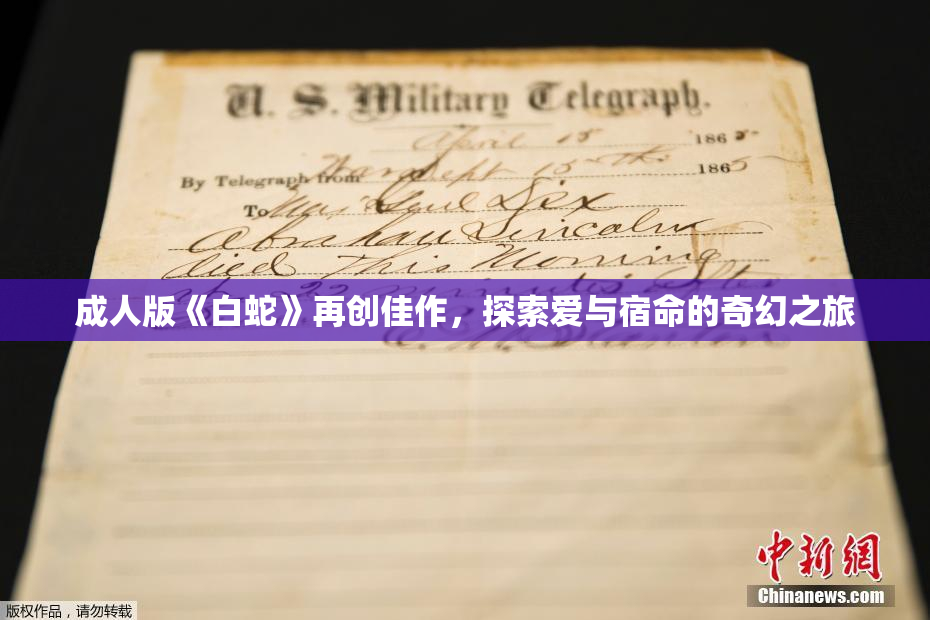 U. S. Military Telegraph.
April 15 1865
By Telegraph from War Dept 15th 1865
To Maj Genl Dix
Abraham Lincoln
died This Morning
22 minutes after
成人版《白蛇》再创佳作，探索爱与宿命的奇幻之旅
中新网
Chinanews.com
版权作品，请勿转载